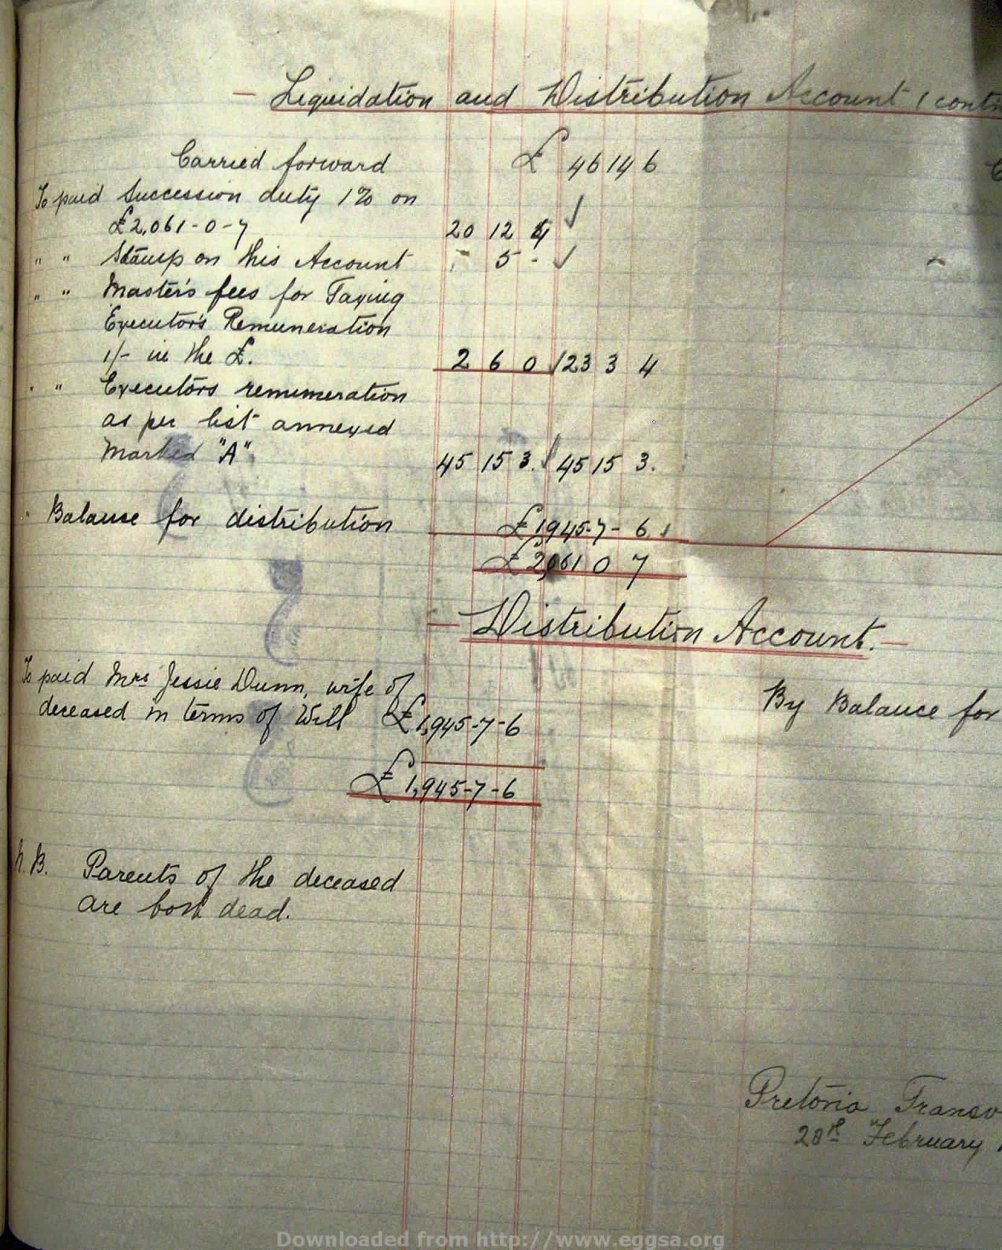 Liquidation and Distribution Account (cont
Carried forward £ 46 14 6
To paid Succession duty 1% on
£2,061-0-7 20 12 4
" " Stamp on this Account - 5 -
" " Master's fees for Taxing
Executor's Remuneration
1/- in the £. 2 6 0 23 3 4
" " Executors remuneration
as per list annexed
Marked "A" 45 15 3. 45 15 3.
" Balance for distribution £1945-7-6
£2,061 0 7
Distribution Account.
To paid Mrs Jessie Dunn, wife of
deceased in terms of Will £1,945-7-6
By Balance for
£1,945-7-6
N.B. Parents of the deceased
are both dead.
Pretoria Transv
28th February
Downloaded from http://www.eggsa.org